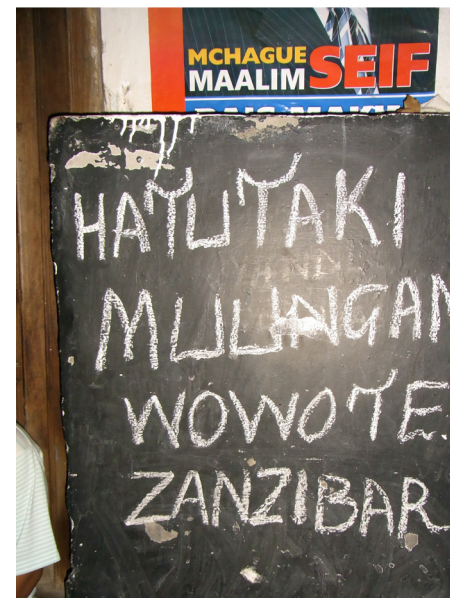 MCHAGUE
MAALIM SEIF
HATUTAKI
MUUNGAN
WOWOTE.
ZANZIBAR